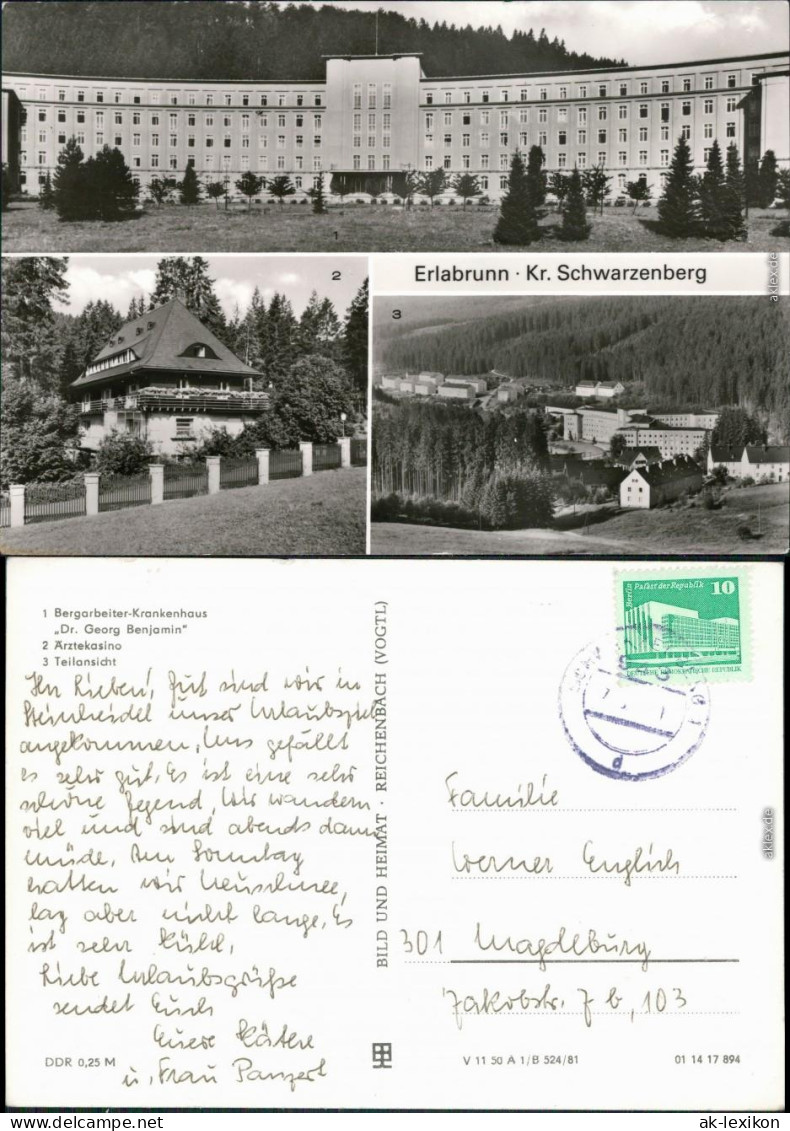 1
2
Erlabrunn · Kr. Schwarzenberg
3
aklex.de
1 Bergarbeiter-Krankenhaus
„Dr. Georg Benjamin"
2 Ärztekasino
3 Teilansicht
Ihr Lieben! Gut sind wir in
Steinheidel unser Urlaubsziel
angekommen, Uns gefällt
es sehr gut. Es ist eine sehr
schöne Gegend, Wir wandern
viel und sind abends dann
müde. Am Sonntag
hatten wir Neuschnee,
lag aber nicht lange. Es
ist sehr kühl,
Liebe Urlaubsgrüße
sendet Euch
Eure Käthe
u. Frau Panzert
DDR 0,25 M
BILD UND HEIMAT · REICHENBACH (VOGTL)
Berlin Palast der Republik 10
DEUTSCHE DEMOKRATISCHE REPUBLIK
d
Familie
Werner Englich
301 Magdeburg
Jakobstr. 7b, 103
V 11 50 A 1/B 524/81
01 14 17 894
aklex.de
www.ak-lexikon.de
ak-lexikon